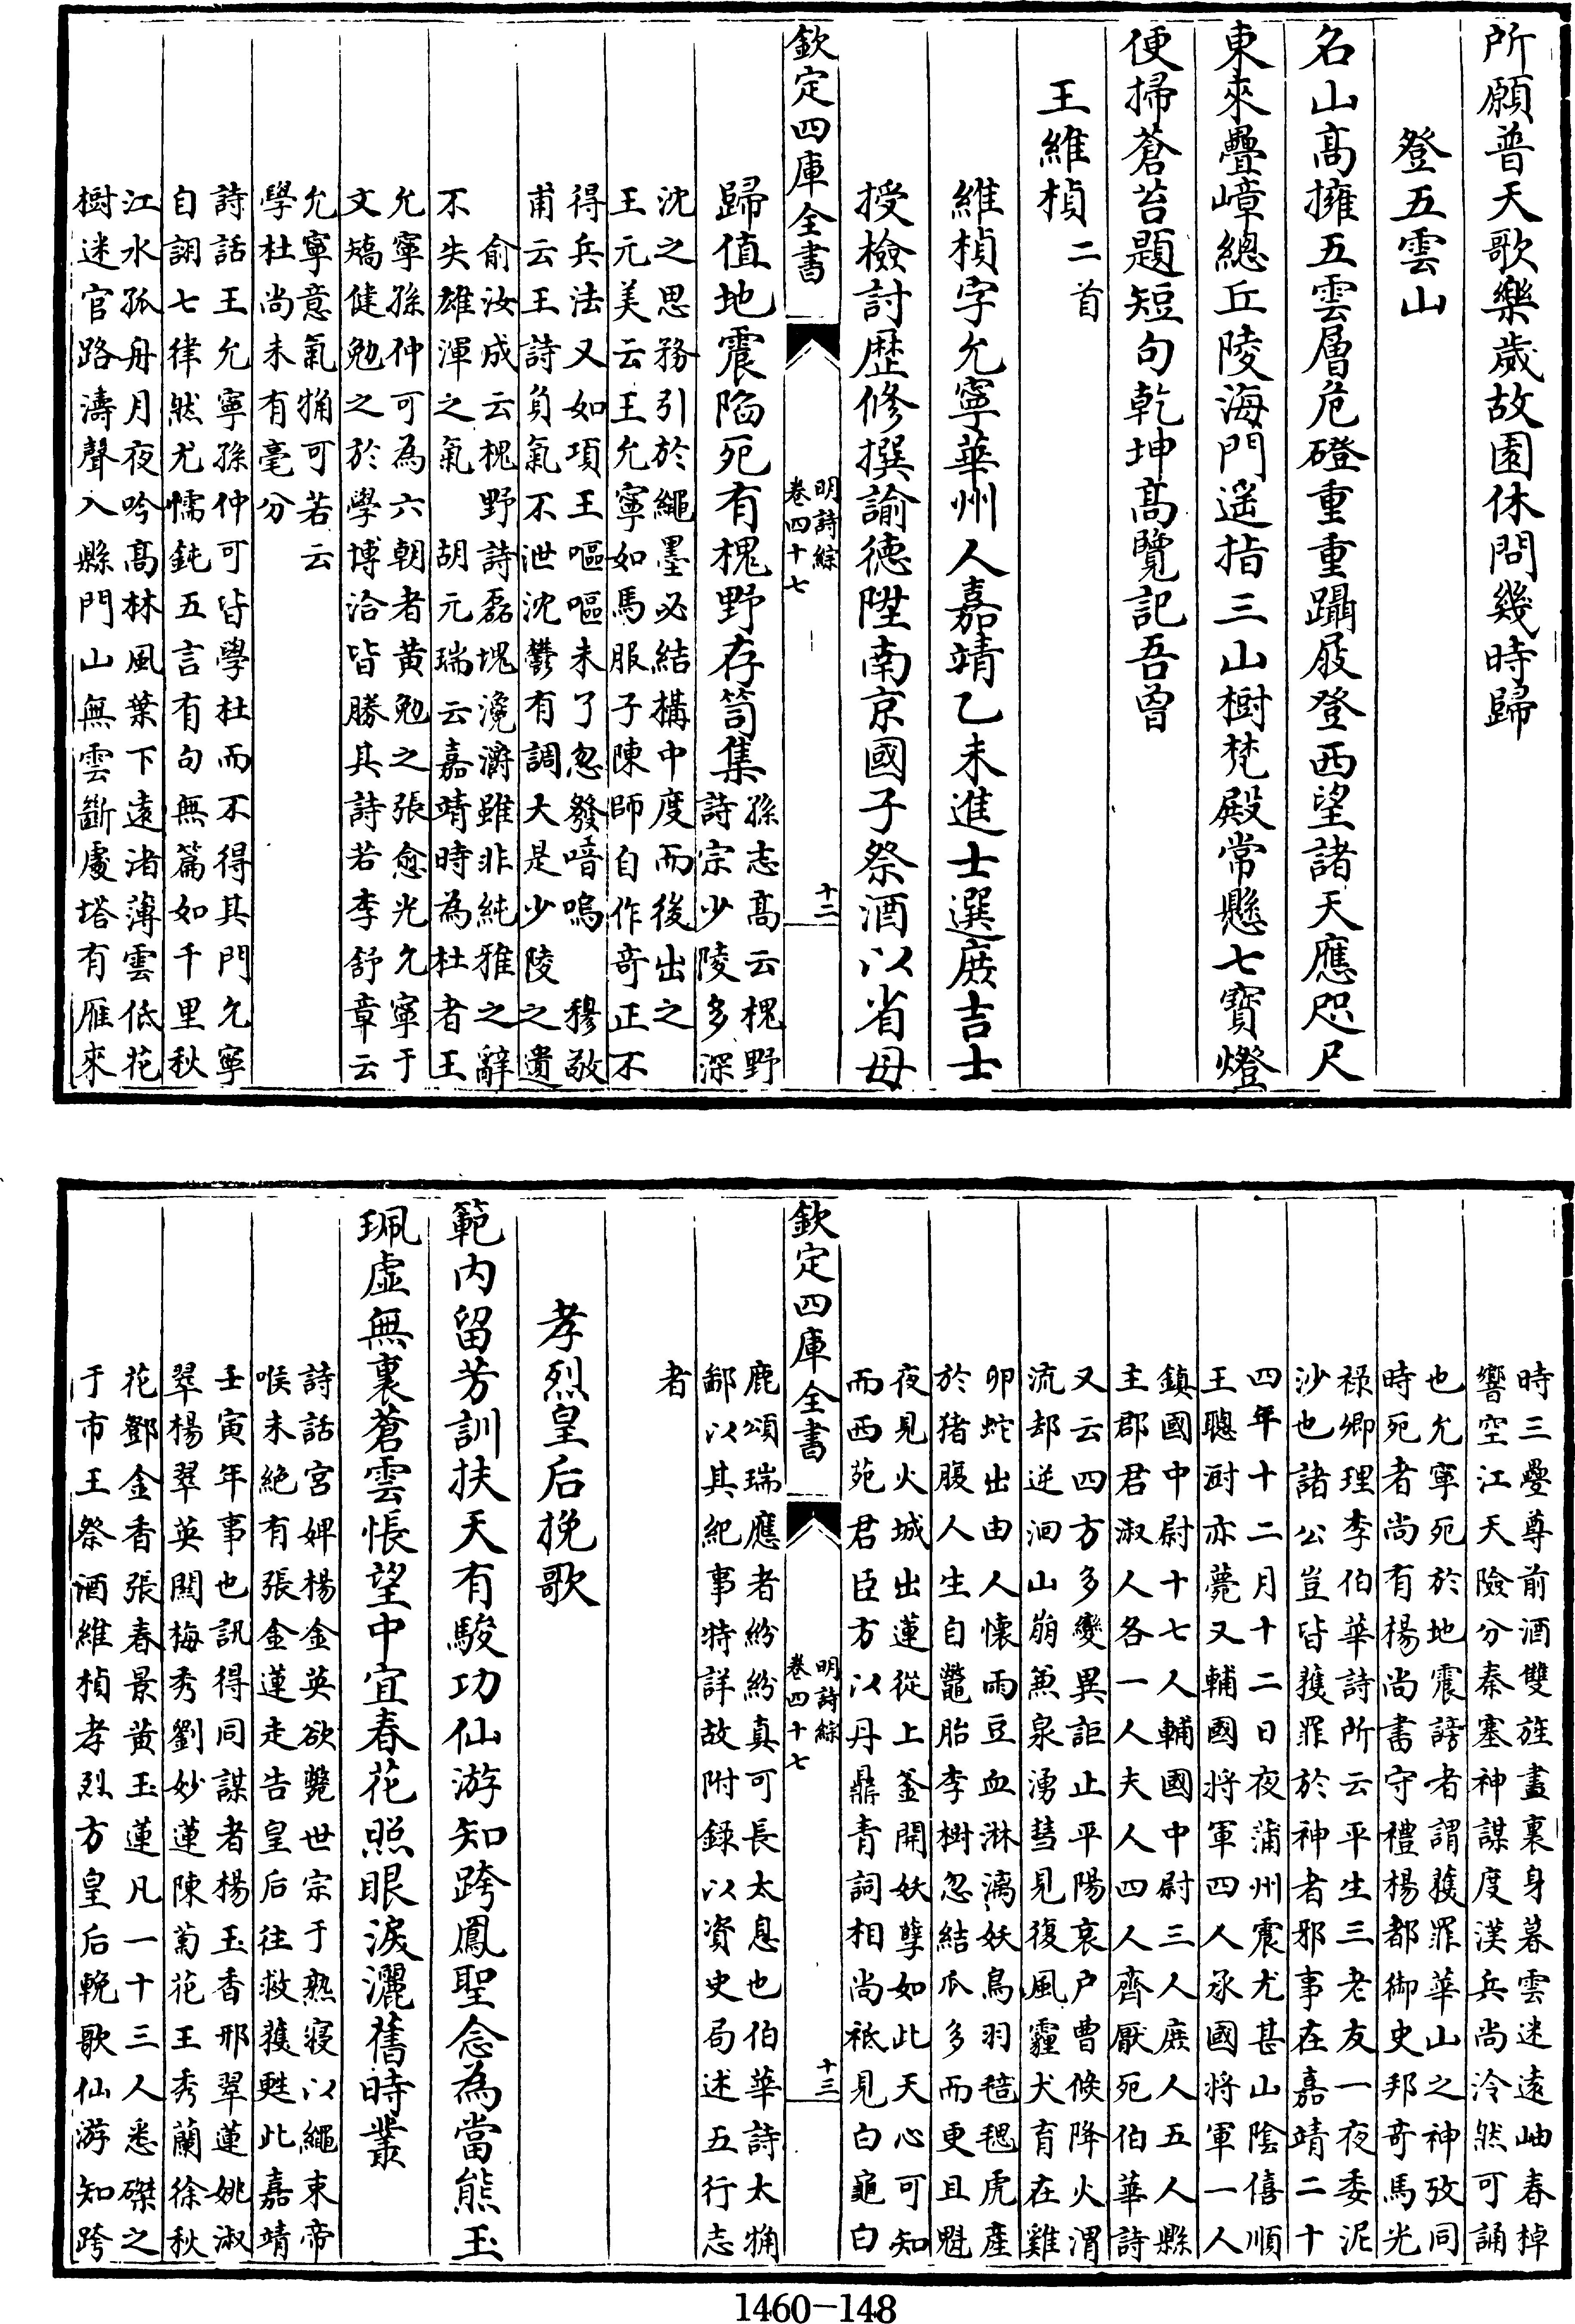 所願普天歌樂歲故園休問幾時歸
登五雲山
名山髙擁五雲層危磴重重躡屐登西望諸天應咫尺
東來疊嶂總丘陵海門遥指三山樹梵殿常懸七寳燈
便掃蒼苔題短句乾坤髙覽記吾曽
王維楨二首
維楨字允寧華州人嘉靖乙未進士選庻吉士
授檢討歴修撰諭德陞南京國子祭酒以省母
欽定四庫全書
明詩綜
卷四十七
十二
歸值地震陷死有槐野存笥集
孫志髙云槐野
詩宗少陵多深
沈之思務引於繩墨必結構中度而後出之
王元美云王允寧如馬服子陳師自作竒正不
得兵法又如項王嘔嘔未了忽發喑嗚 穆敬
甫云王詩負氣不泄沈鬱有調大是少陵之遺
俞汝成云槐野詩磊塊瀺灂雖非純雅之辭
不失雄渾之氣 胡元瑞云嘉靖時為杜者王
允寧孫仲可為六朝者黄勉之張愈光允寧于
文矯健勉之於學博洽皆勝其詩若李舒章云
允寧意氣觕可若云
學杜尚未有毫分
詩話王允寧孫仲可皆學杜而不得其門允寧
自詡七律然尤懦鈍五言有句無篇如千里秋
江水孤舟月夜吟髙林風葉下遠渚薄雲低花
樹迷官路濤聲入縣門山無雲斷處塔有雁來
時三疊尊前酒雙旌畫裏身暮雲迷遠岫春棹
響空江天險分秦塞神謀度漢兵尚泠然可誦
也允寧死於地震謗者謂獲罪華山之神攷同
時死者尚有楊尚書守禮楊都御史邦竒馬光
禄卿理李伯華詩所云平生三老友一夜委泥
沙也諸公豈皆獲罪於神者邪事在嘉靖二十
四年十二月十二日夜蒲州震尤甚山陰僖順
王聰㴭亦薨又輔國將軍四人承國將軍一人
鎮國中尉十七人輔國中尉三人庻人五人縣
主郡君淑人各一人夫人四人齊厭死伯華詩
又云四方多變異詎止平陽哀户曹候降火渭
流却逆洄山崩兼泉湧彗見復風霾犬育在雞
卵蛇出由人懷雨豆血淋漓妖鳥羽毰毸虎產
於猪腹人生自鼈胎李樹忽結瓜多而更且魁
夜見火城出蓮從上釜開妖孽如此天心可知
而西苑君臣方以丹鼎青詞相尚祗見白龜白
欽定四庫全書
明詩綜
卷四十七
十三
鹿頌瑞應者紛紛真可長太息也伯華詩太觕
鄙以其紀事特詳故附錄以資史局述五行志
者
孝烈皇后挽歌
範内留芳訓扶天有駿功仙游知跨鳳聖念為當熊玉
珮虚無裏蒼雲悵望中宜春花照眼淚灑舊時叢
詩話宮婢楊金英欲斃世宗于熟寢以繩束帝
喉未絶有張金蓮走告皇后往救獲甦此嘉靖
壬寅年事也訊得同謀者楊玉香邢翠蓮姚淑
翠楊翠英關梅秀劉妙蓮陳菊花王秀蘭徐秋
花鄧金香張春景黄玉蓮凡一十三人悉磔之
于市王祭酒維楨孝烈方皇后輓歌仙游知跨
1460-148